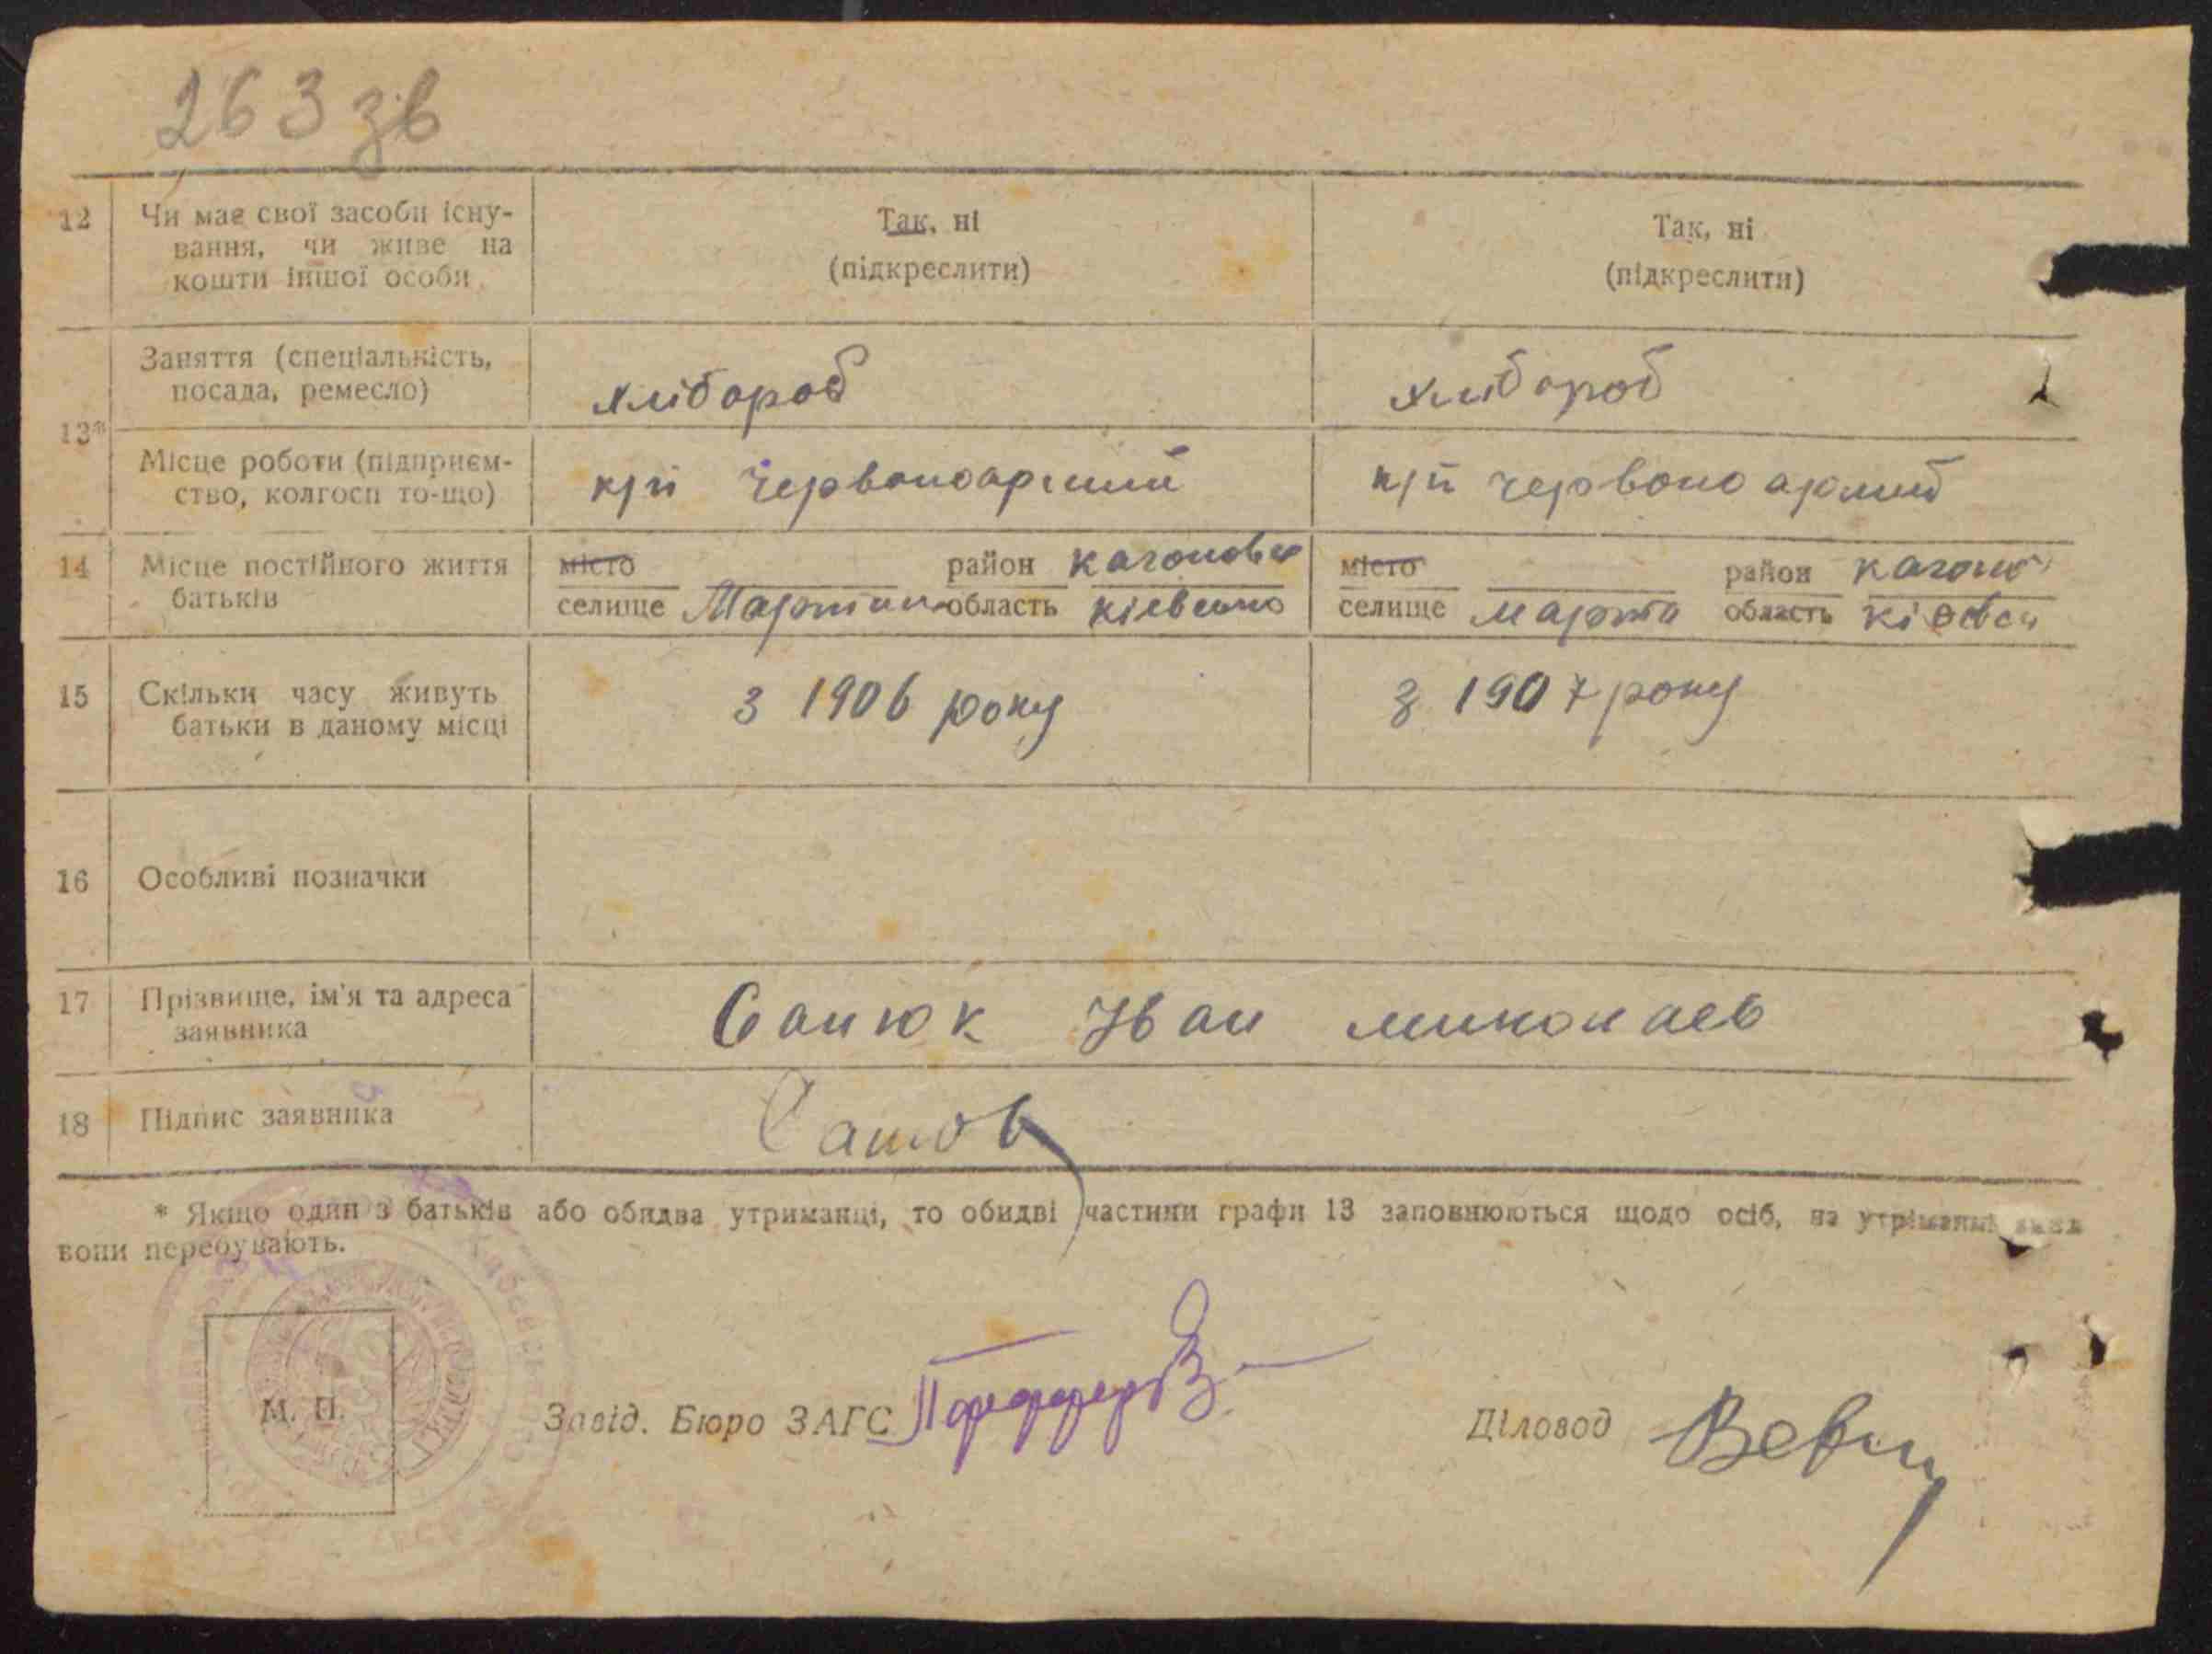 263 зв
12 Чи має свої засоби існу- Так, ні Так, ні
вання, чи живе на (підкреслити) (підкреслити)
кошти іншої особи
Заняття (спеціальність,
посада, ремесло) хлібороб хлібороб
13*
Місце роботи (підприєм- к/п Червоноармий к/п червоно армий
ство, колгосп то-що)
14 Місце постійного життя місто район кагоновск місто район кагоно
батьків селище Мартин область київсько селище марти область
15 Скільки часу живуть з 1906 року з 1907 року
батьки в даному місці
16 Особливі позначки
17 Прізвище, ім'я та адреса Санюк Иван миколаев
заявника
18 Підпис заявника
* Якщо один з батьків або обидва утриманці, то обидві частини графи 13 заповнюються щодо осіб, на
вони перебувають.
М. П. Завід. Бюро ЗАГС Діловод